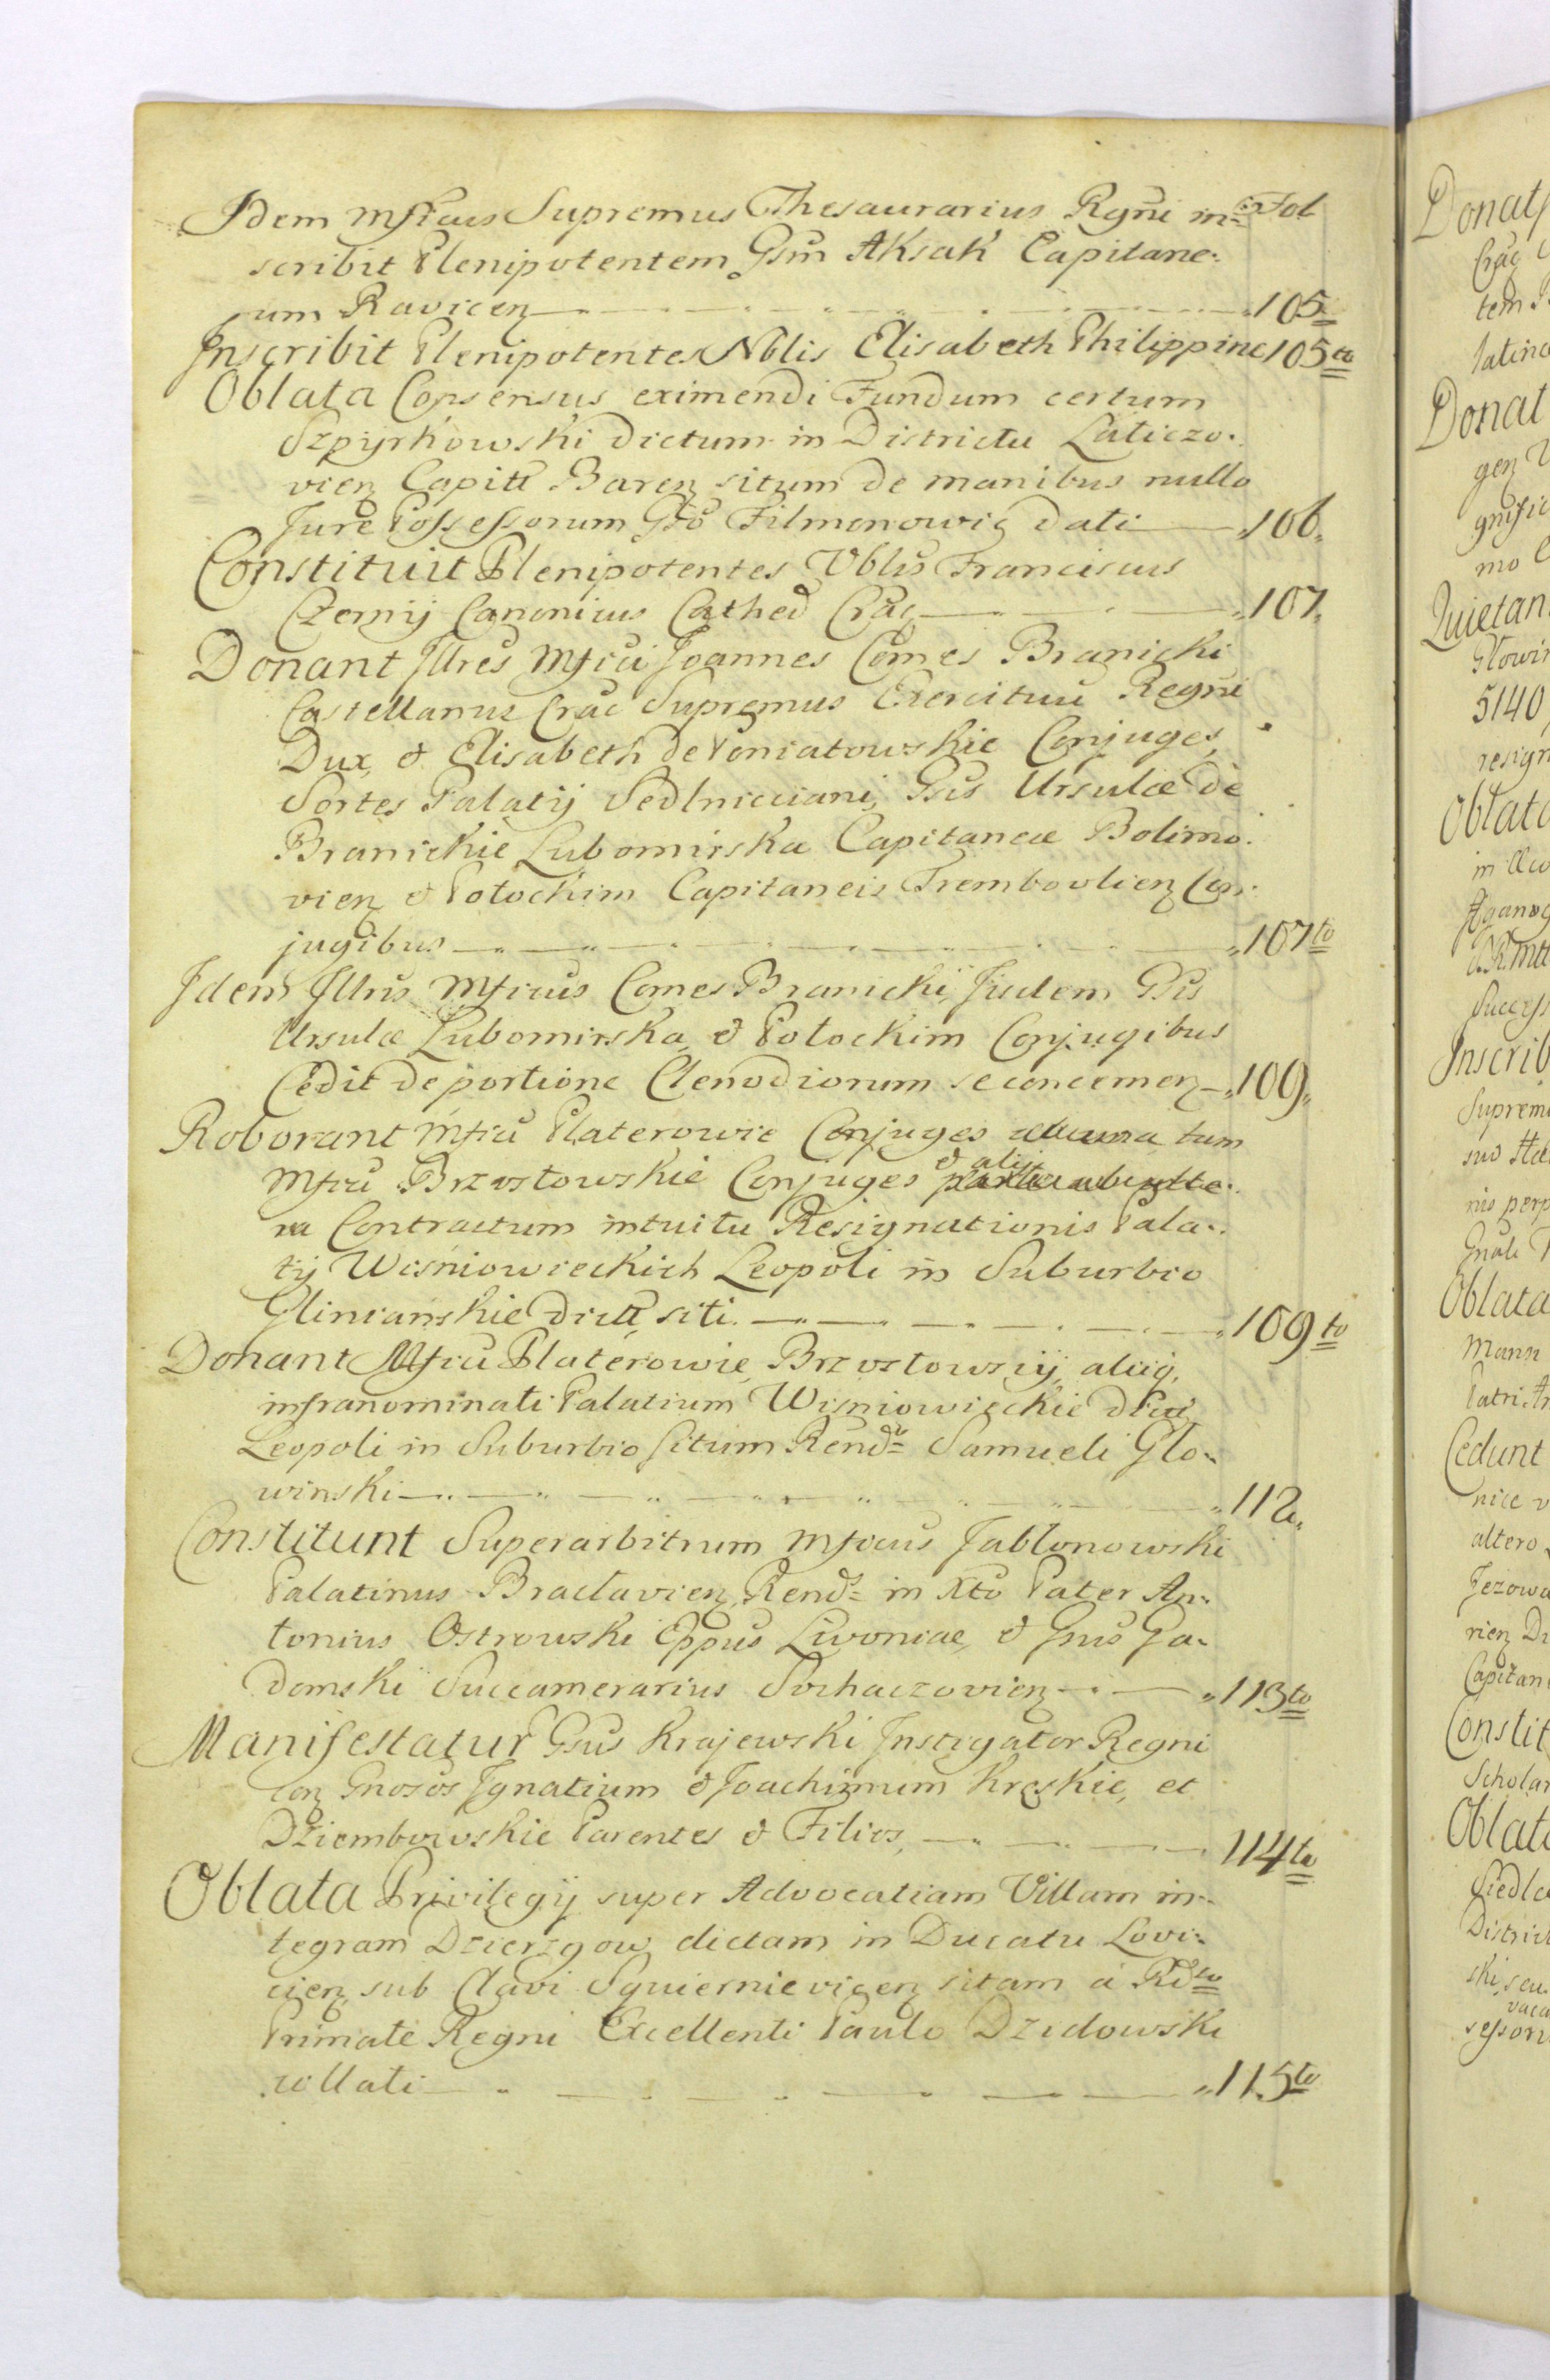 Idem Mficus Supremus Thesaurarius Regni in- Fol
scribit Plenipotentem Gsm Aksak Capitane-
um Ravicen 105
Inscribit Plenipotentes Nblis Elisabeth Philippine 105to
Oblata Consensus eximendi Fundum certum
Szpyrkowski dictum in Districtu Laticzo-
vien Capittu Baren situm de manibus nullo
Jure Possessorum Gso Filmonowicz dati 106.
Constituit Plenipotentes Vblis Franciscus
Czerny Canonicus Cathed Crac 107.
Donant Illres Mfici Joannes Comes Branicki
Castellanus Crac Supremus Exercituu Regni
Dux, & Elisabeth de Poniatowskie Conjuges,
Sortes Palatij Sedlnicciani, Gsis Ursulæ de
Branickie Lubomirska Capitaneæ Bolimo-
vien & Potockim Capitaneis Trembovlien Con-
jugibus 107to
Idem Illris Mficus Comes Branicki, Iisdem Gsis
Ursulæ Lubomirska, & Potockim Conjugibus
Cedit de portione Clenodiorum se concernen 109.
Roborant Mfici Platerowie Conjuges tum
Mfici Brzostowskie Conjuges & alij
ra Contractum intuitu Resignationis Pala-
tij Wiśniowieckich Leopoli in Suburbio
Gliniańskie dictt, siti 109to
Donant Mfici Platerowie, Brzostowscij, aliiq,
infranominati Palatium Wiśniowieckie dict
Leopoli in Suburbio situm Rendo Samueli Glo-
winski 112.
Constitunt Superarbitrum Mficus Jabłonowski
Palatinus Bracłavien, Rends in Xto Pater An-
tonius Ostrowski Eppus Livoniae, & Gnus Ga-
domski Succamerarius Sochaczovien 113to
Manifestatur Gsus Krajewski Instigator Regni
con Gnosos Ignatium & Joachimum Kręskie, et
Dziembowskie Parentes & Filios, 114to
Oblata Privilegij super Advocatiam Villam in-
tegram Dzierzgow dictam in Ducatu Lovi-
cien, sub Clavi Squiernievicen sitam á Rdto
Primate Regni Excellenti Paulo Dzidowski
collati 115to
Donat
Crac
tem
latina
Donat
gen
gnific
mo
Quietan
Głowin
5140
resign
Oblata
in
Success
Inscrib
Suprem
suo
nis perp
Gnali
Oblata
Mann
Patri
Cedunt
nice
altero
Jezowa
rien
Capitan
Constit
Scholar
Oblata
Siedle
District
ski, seu
vaca
sessori